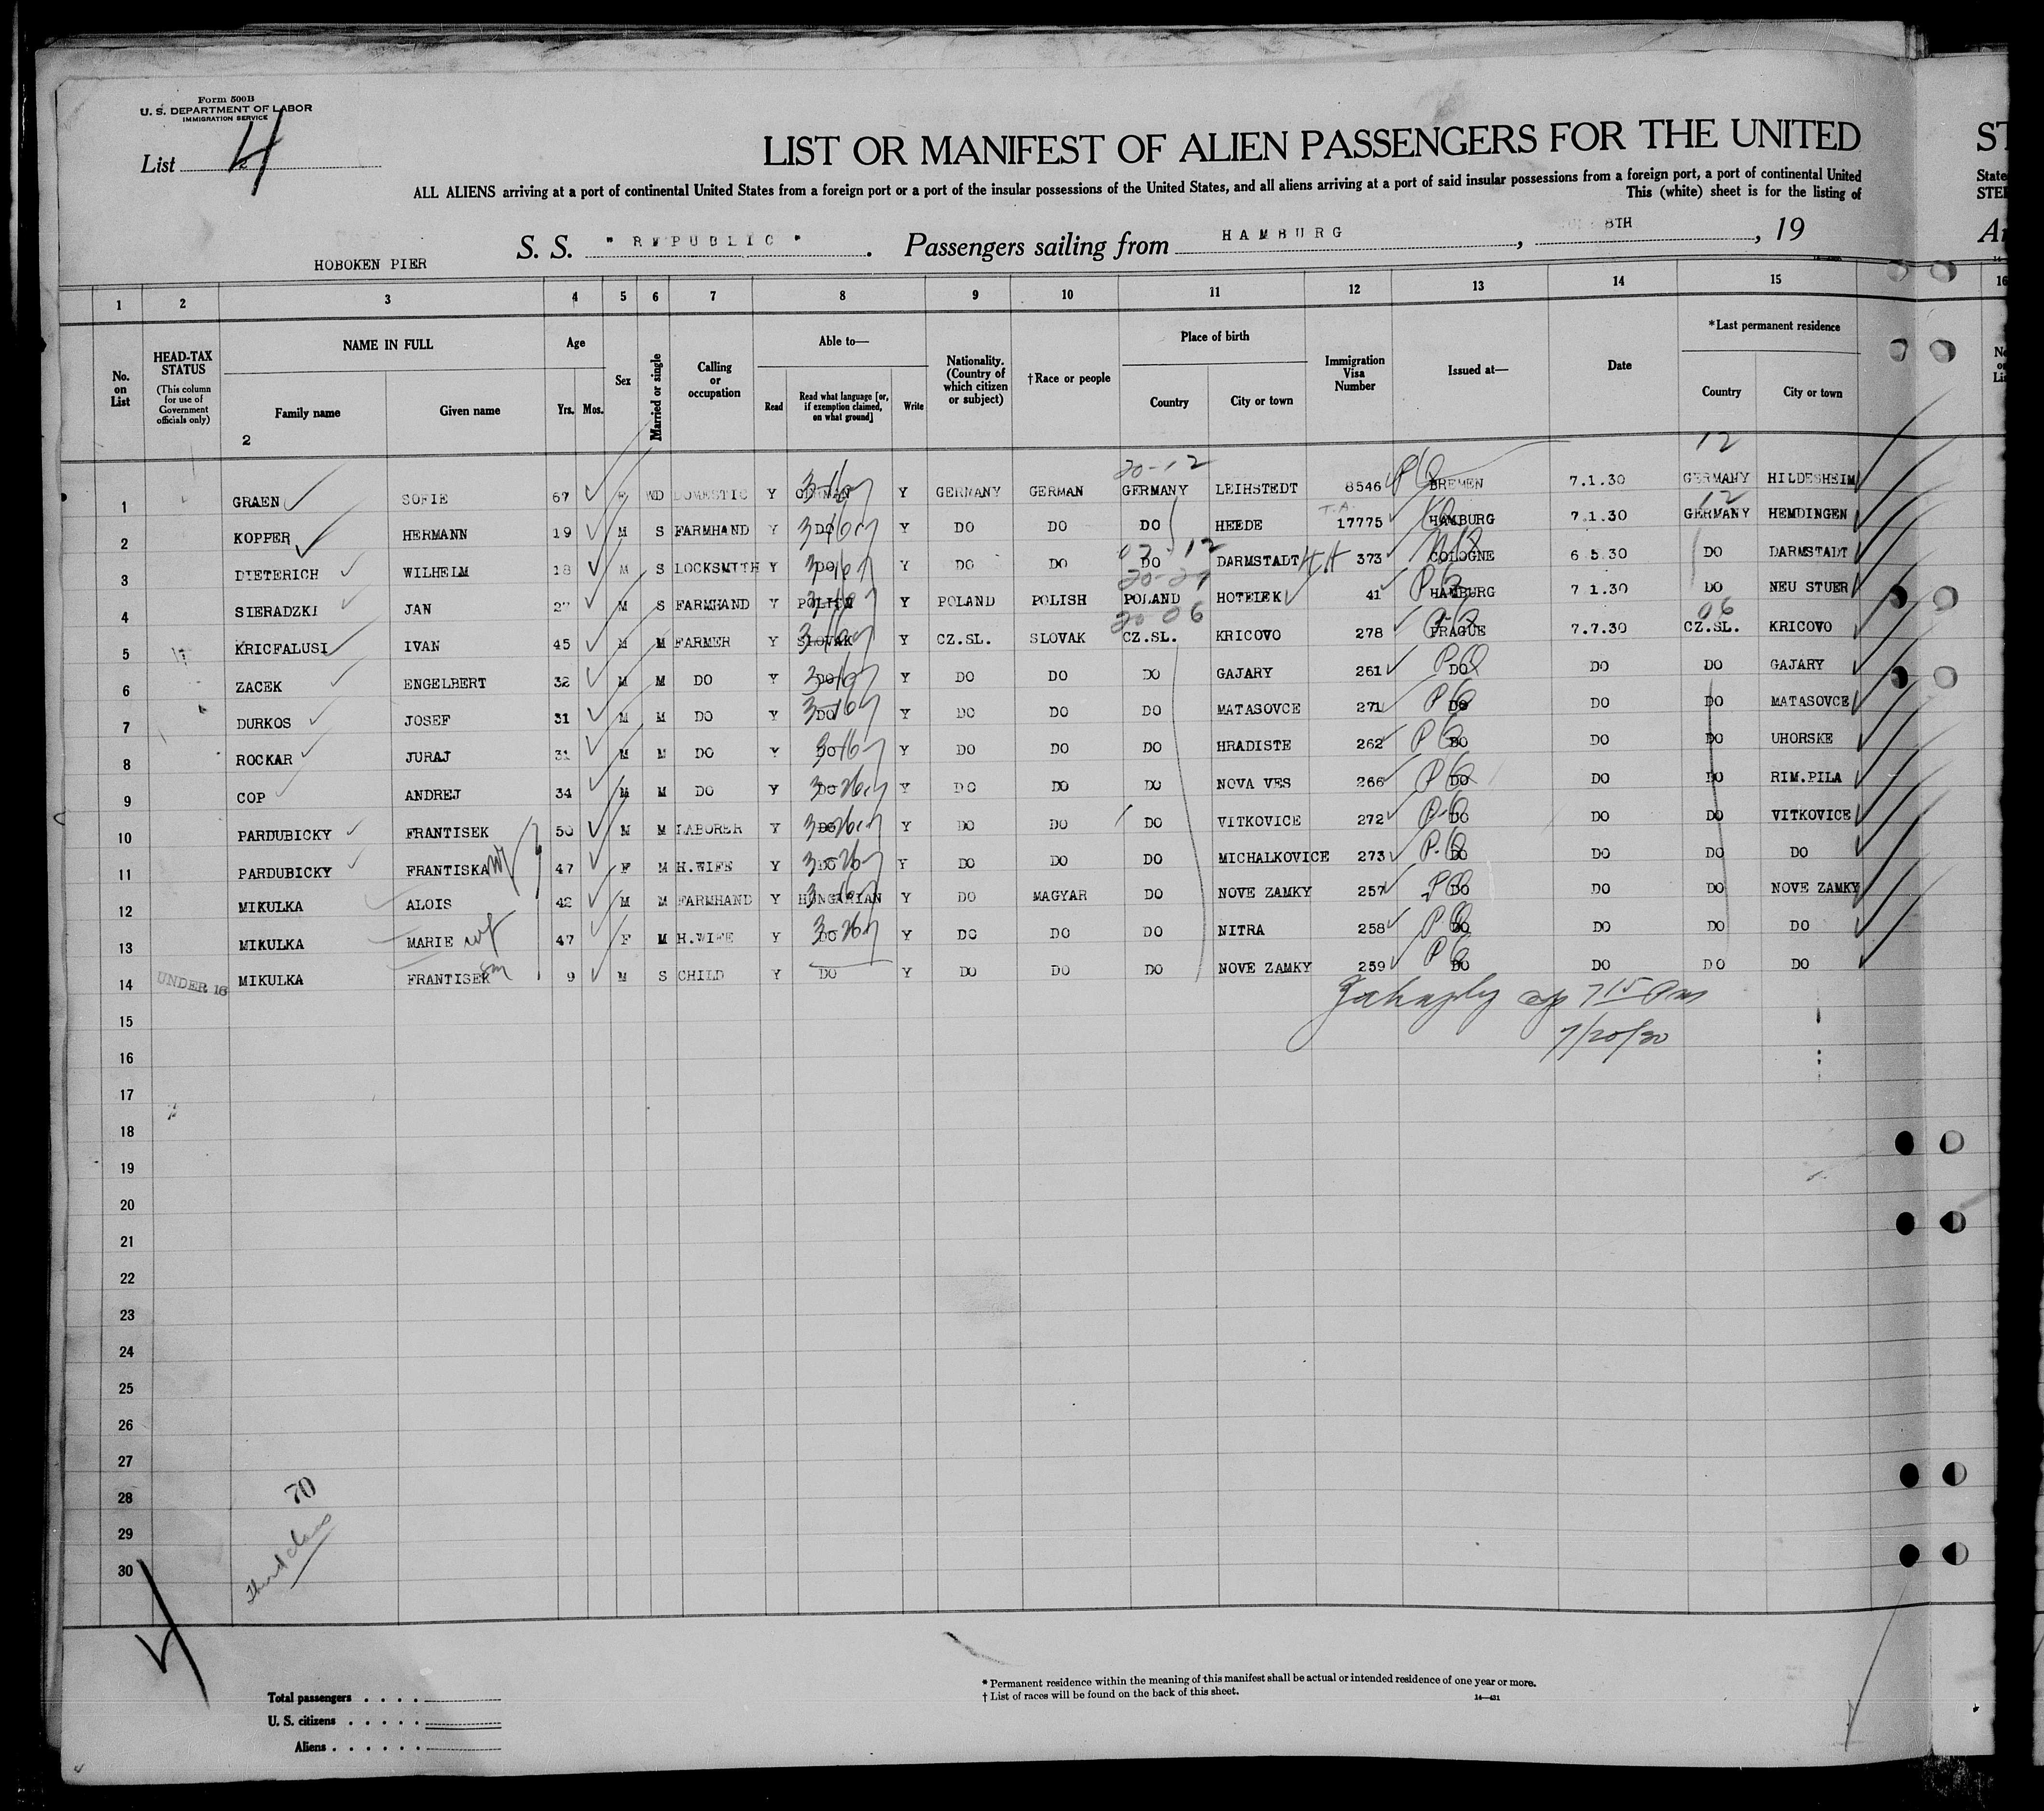 Form 500B
U. S. DEPARTMENT OF LABOR
IMMIGRATION SERVICE
List 4
LIST OR MANIFEST OF ALIEN PASSENGERS FOR THE UNITED ST
ALL ALIENS arriving at a port of continental United States from a foreign port or a port of the insular possessions of the United States, and all aliens arriving at a port of said insular possessions from a foreign port, a port of continental United State
This (white) sheet is for the listing of STE
S. S. "RWPUBLIC". Passengers sailing from HAMBURG, 8TH, 19
HOBOKEN PIER
1 2 3 4 5 6 7 8 9 10 11 12 13 14 15 16
No. on List
HEAD-TAX STATUS (This column for use of Government officials only)
NAME IN FULL Family name Given name
Age Yrs. Mos.
Sex
Married or single
Calling or occupation
Able to— Read Read what language [or, if exemption claimed, on what ground] Write
Nationality. (Country of which citizen or subject)
†Race or people
Place of birth Country City or town
Immigration Visa Number
Issued at—
Date
*Last permanent residence Country City or town
2
20-12 12
1 GRAEN SOFIE 67 F WD DOMESTIC Y GERMAN Y GERMANY GERMAN GERMANY LEIHSTEDT 8546 BREMEN 7.1.30 GERMANY HILDESHEIM
T.A. 12
2 KOPPER HERMANN 19 M S FARMHAND Y DO Y DO DO DO HEEDE 17775 HAMBURG 7.1.30 GERMANY HEMDINGEN
3 DIETERICH WILHELM 18 M S LOCKSMITH Y DO Y DO DO DO DARMSTADT 373 COLOGNE 6 5.30 DO DARMSTADT
4 SIERADZKI JAN 27 M S FARMHAND Y POLISH Y POLAND POLISH POLAND HOTELEK 41 HAMBURG 7 1.30 DO NEU STUER
20-06 06
5 KRICFALUSI IVAN 45 M M FARMER Y SLOVAK Y CZ.SL. SLOVAK CZ.SL. KRICOVO 278 PRAGUE 7.7.30 CZ.SL. KRICOVO
6 ZACEK ENGELBERT 32 M M DO Y DO Y DO DO DO GAJARY 261 DO DO DO GAJARY
7 DURKOS JOSEF 31 M M DO Y DO Y DO DO DO MATASOVCE 271 DO DO DO MATASOVCE
8 ROCKAR JURAJ 31 M M DO Y DO Y DO DO DO HRADISTE 262 DO DO DO UHORSKE
9 COP ANDREJ 34 M M DO Y DO Y DO DO DO NOVA VES 266 DO DO DO RIM.PILA
10 PARDUBICKY FRANTISEK 50 M M LABORER Y DO Y DO DO DO VITKOVICE 272 DO DO DO VITKOVICE
11 PARDUBICKY FRANTISKA wf 47 F M H.WIFE Y DO Y DO DO DO MICHALKOVICE 273 DO DO DO DO
12 MIKULKA ALOIS 42 M M FARMHAND Y HUNGARIAN Y DO MAGYAR DO NOVE ZAMKY 257 DO DO DO NOVE ZAMKY
13 MIKULKA MARIE wf 47 F M H.WIFE Y DO Y DO DO DO NITRA 258 DO DO DO DO
14 UNDER 16 MIKULKA FRANTISEK sn 9 M S CHILD Y DO Y DO DO DO NOVE ZAMKY 259 DO DO DO DO
7/20/30
15
16
17
18
19
20
21
22
23
24
25
26
27
28
29
30
70
Third class
4
Total passengers
U. S. citizens
Aliens
* Permanent residence within the meaning of this manifest shall be actual or intended residence of one year or more.
† List of races will be found on the back of this sheet.
14—431